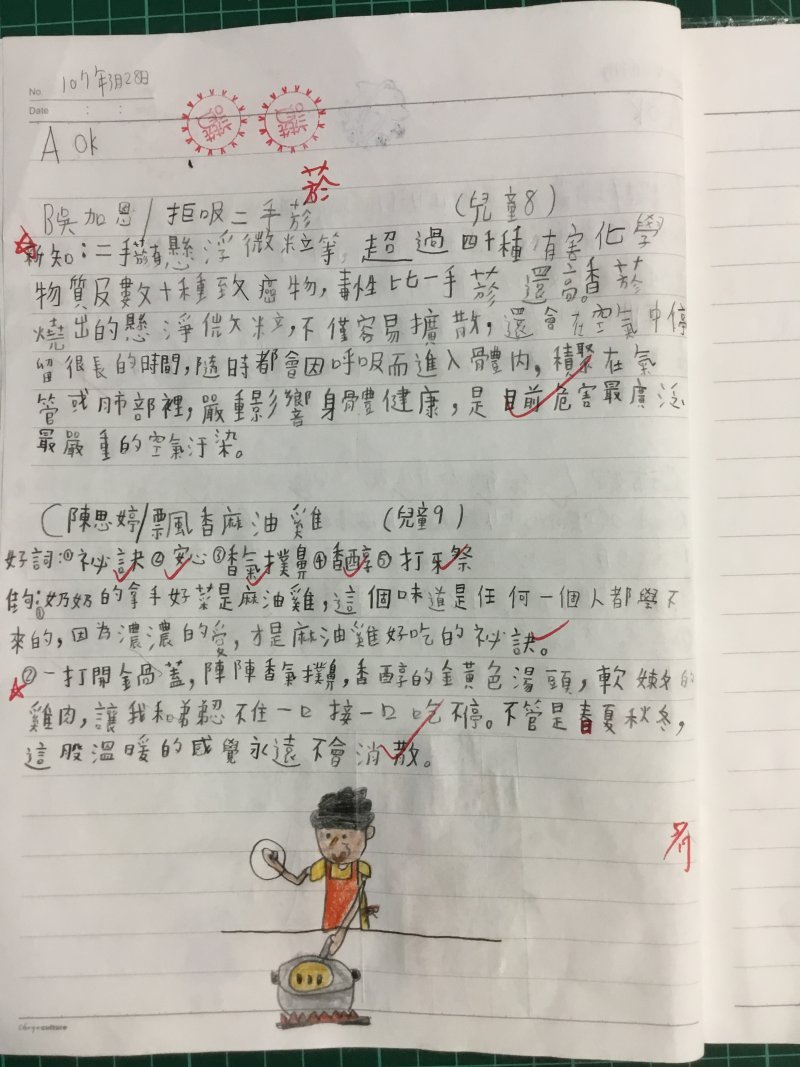 No. 107年3月28日
Date : :
A ok
菸
B吳加恩/拒吸二手菸 (兒童8)
新知:二手菸有懸浮微粒等,超過四千種有害化學
物質及數十種致癌物,毒性比一手菸還高。香菸
燒出的懸浮微粒,不僅容易擴散,還會在空氣中停
留很長的時間,隨時都會因呼吸而進入體內,積聚在氣
管或肺部裡,嚴重影響身體健康,是目前危害最廣泛
最嚴重的空氣汙染。
C陳思婷/飄風香麻油雞 (兒童9)
好詞:①祕訣②安心③香氣撲鼻④香醇⑤打牙祭
佳句:①奶奶的拿手好菜是麻油雞,這個味道是任何一個人都學不
來的,因為濃濃的愛,才是麻油雞好吃的祕訣。
②一打開鍋蓋,陣陣香氣撲鼻,香醇的金黃色湯頭,軟嫩的
雞肉,讓我和弟弟忍不住一口接一口吃不停。不管是春夏秋冬,
這股溫暖的感覺永遠不會消散。